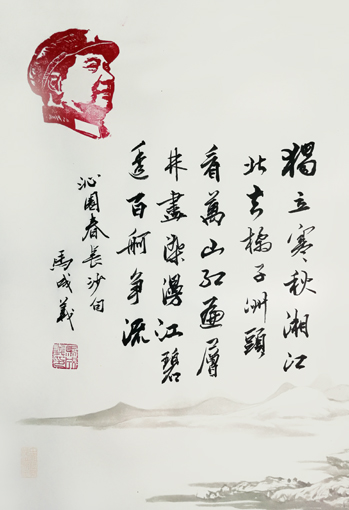 獨立寒秋湘江
北去橘子洲頭
看萬山紅遍層
林盡染漫江碧
透百舸争流
沁園春長沙句
馬成義